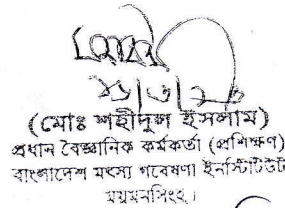 (মোঃ শহীদুল ইসলাম)
প্রধান বৈজ্ঞানিক কর্মকর্তা (প্রশিক্ষণ)
বাংলাদেশ মৎস্য গবেষণা ইনস্টিটিউট
ময়মনসিংহ।